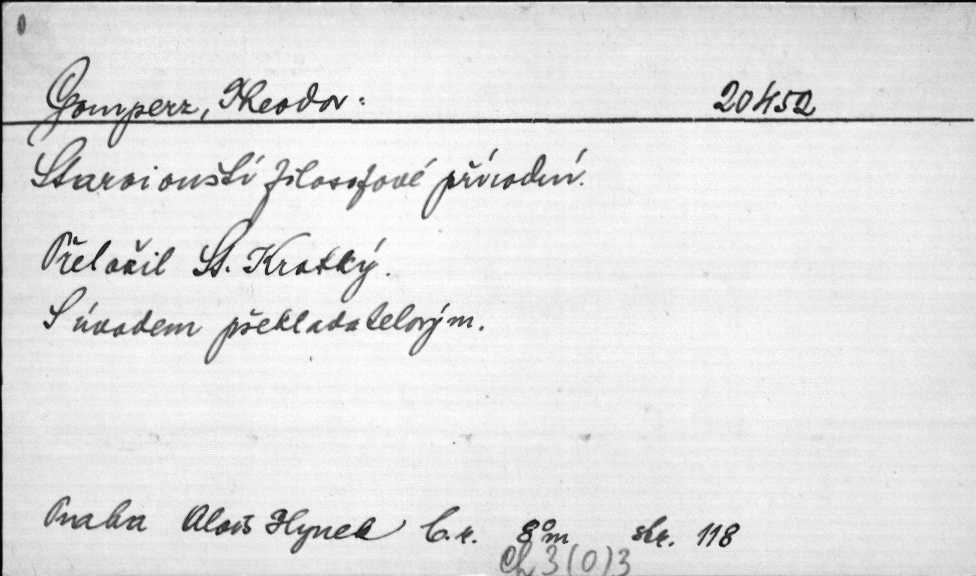 Gomperz, Theodor: 20452
Staroionští filosofové přírodní.
Přeložil St. Krátký.
S úvodem překladatelovým.
Praha Alois Hynek b.r. 8°m str. 118
Ch 3 (0) 3